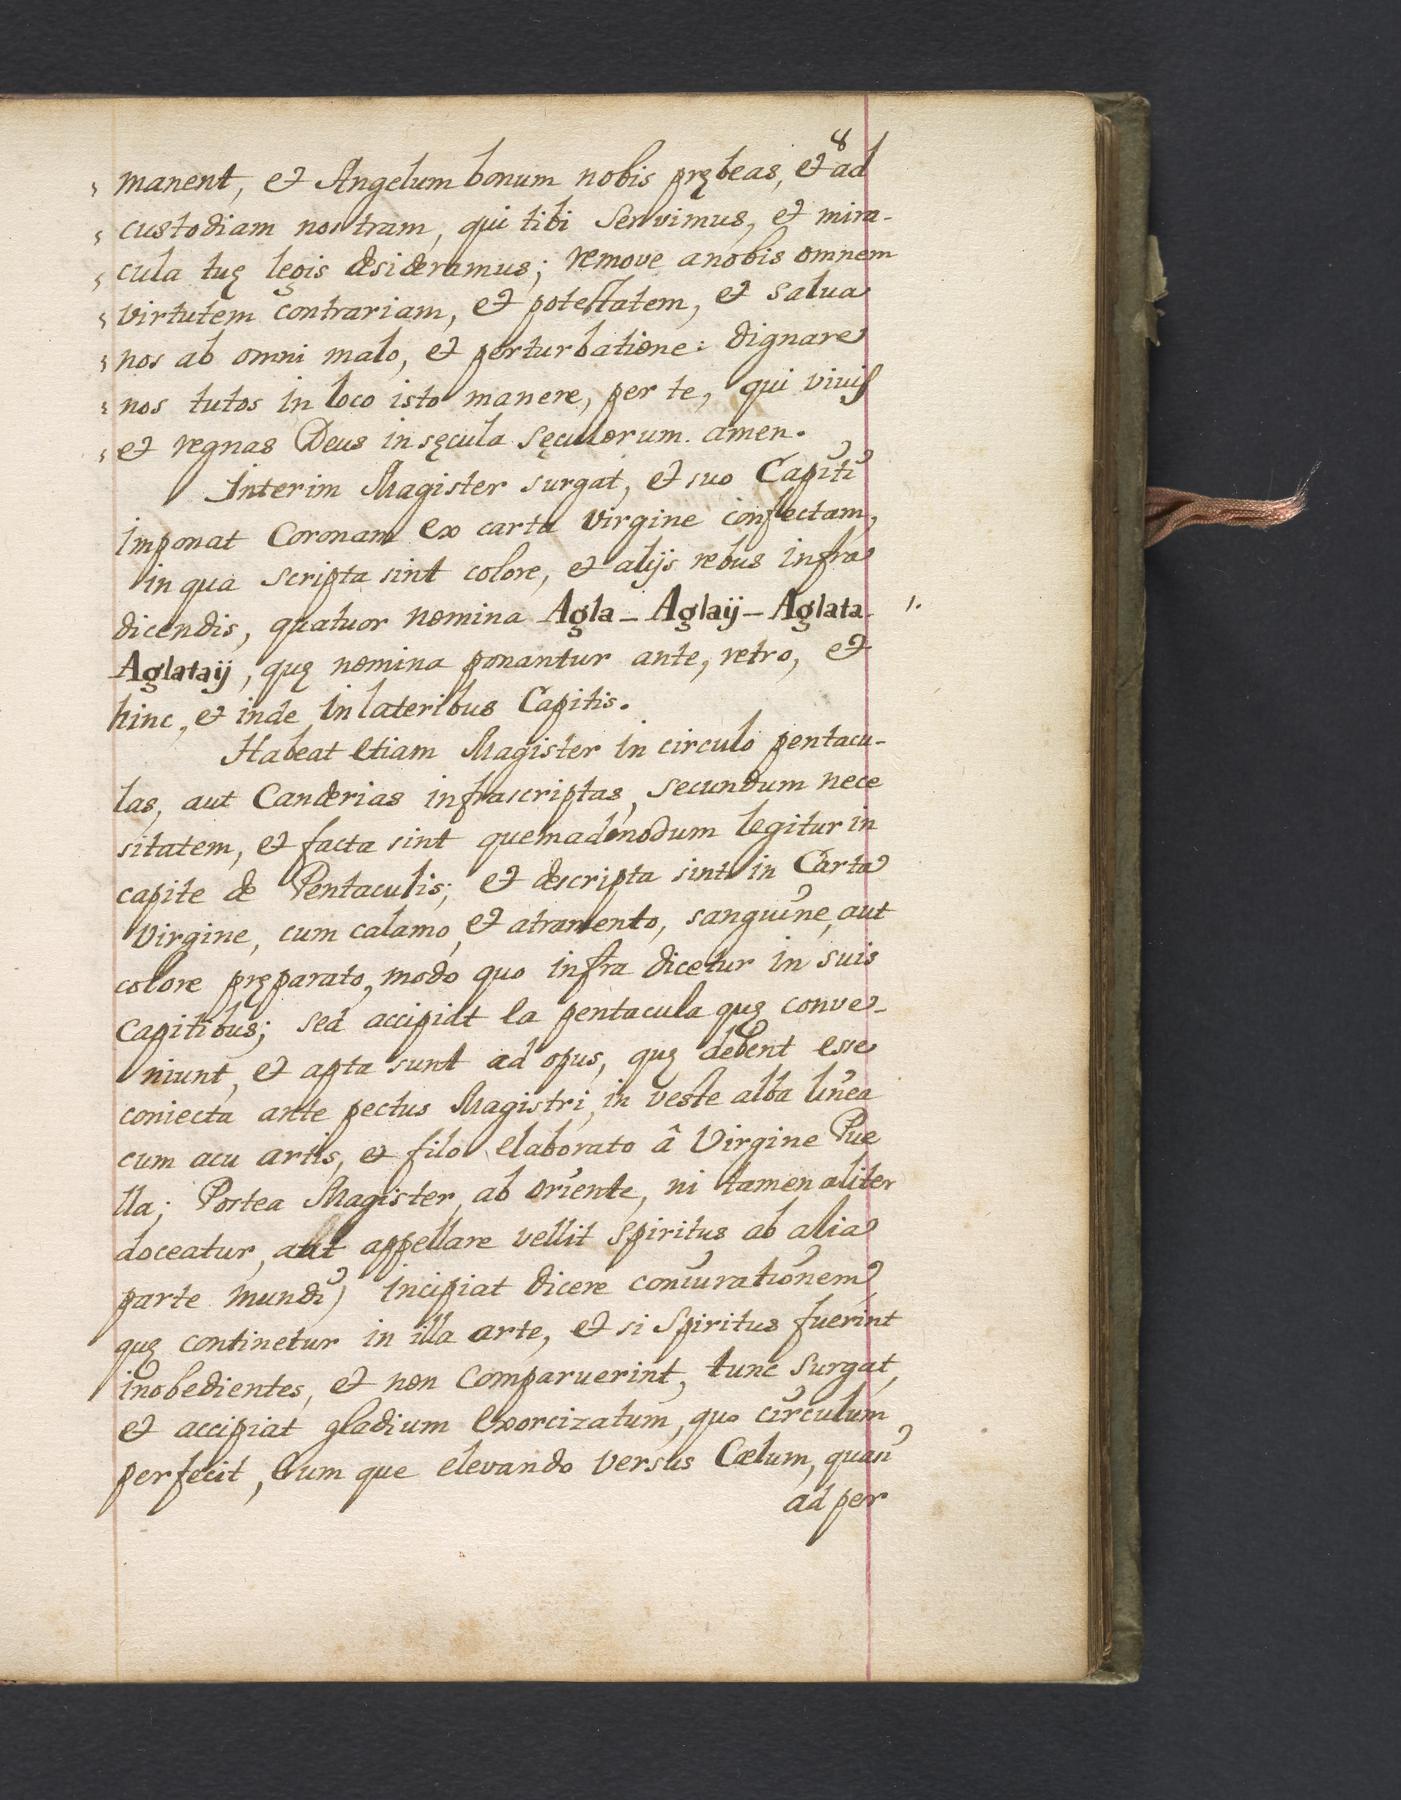 8
manent, et Angelum bonum nobis prębeas, et ad
custodiam nostram, qui tibi servimus, et mira-
cula tuę legis desideramus; remove anobis omnem
virtutem contrariam, et potestatem, et salua
nos ab omni malo, et perturbatione: dignare
nos tutos in loco isto manere, per te, qui viuis
et regnas Deus in sęcula sęculorum. amen.
Interim Magister surgat, et suo Capiti
imponat Coronam ex carta virgine confectam,
in qua scripta sint colore, et alijs rebus infra
dicendis, quatuor nomina Agla - Aglaij - Aglata- 1.
Aglataij, quę nomina ponantur ante, retro, et
hinc, et inde in lateribus Capitis.
Habeat etiam Magister in circulo pentacu-
las, aut Canderias infrascriptas, secundum nece
sitatem, et facta sint quemadmodum legitur in
capite de Pentaculis; et descripta sint in Carta
Virgine, cum calamo, et atramento, sanguine, aut
colore pręparato, modo quo infra dicetur in suis
Capitibus; sed accipiat ea pentacula quę conve-
niunt, et apta sunt ad opus, quę debent esse
coniecta ante pectus Magistri, in veste alba linea
cum acu artis, et filo elaborato â Virgine Pue
lla; Postea Magister, ab oriente, ni tamen aliter
doceatur, aut appellare vellit spiritus ab alia
parte mundi) incipiat dicere coniurationem,
quę continetur in illa arte, et si spiritus fuerint
inobedientes, et non comparuerint, tunc surgat,
et accipiat gladium exorcizatum, quo circulum
perfecit, Eum que elevando versus Cælum, quan
ad per